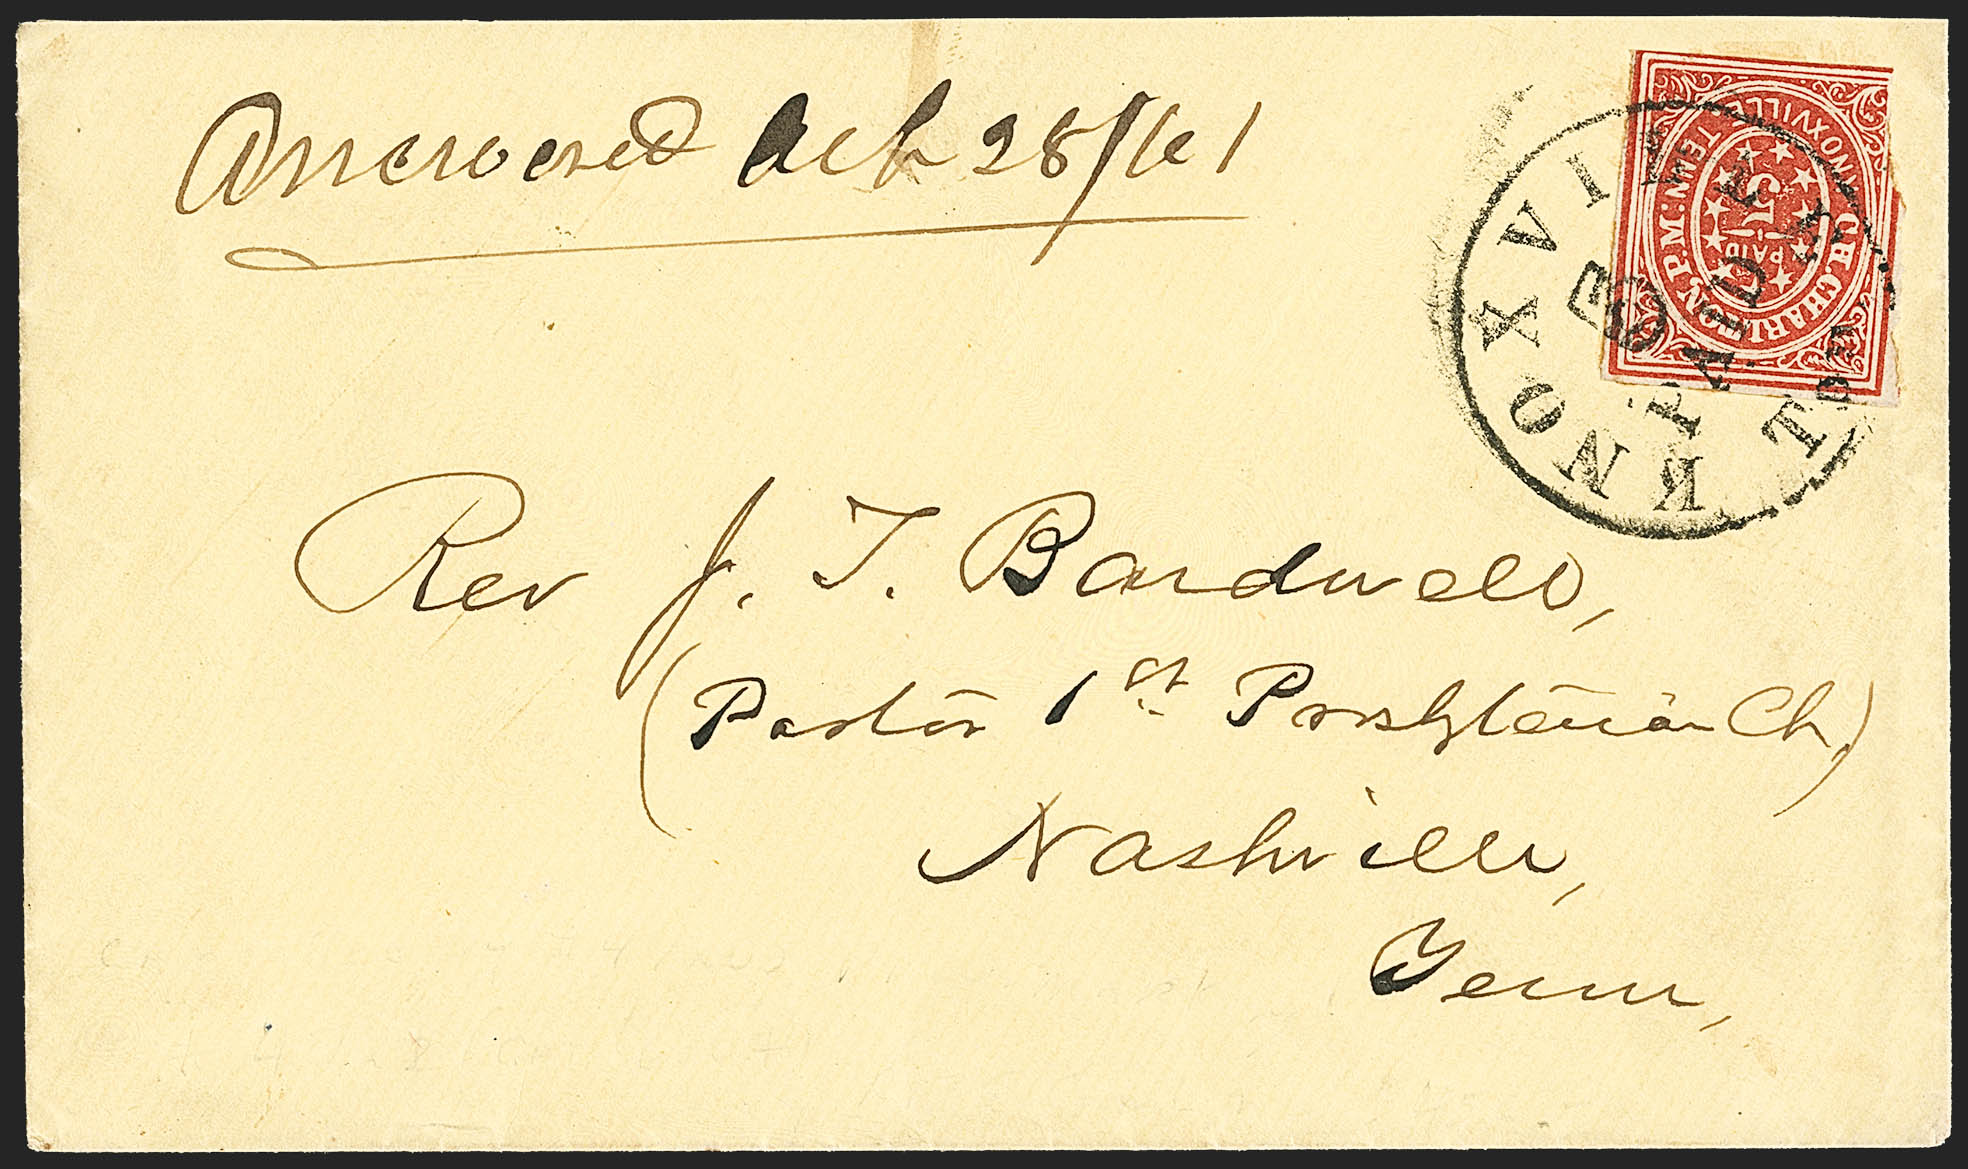 Answered Oct 28/61
C.H. CHARLTON, P.M.
KNOXVILLE TENN.
PAID 5
KNOXVILLE TEN
PAID
Rev J. T. Bardwell,
(Pastor 1st Presbyterian Ch)
Nashville,
Tenn,